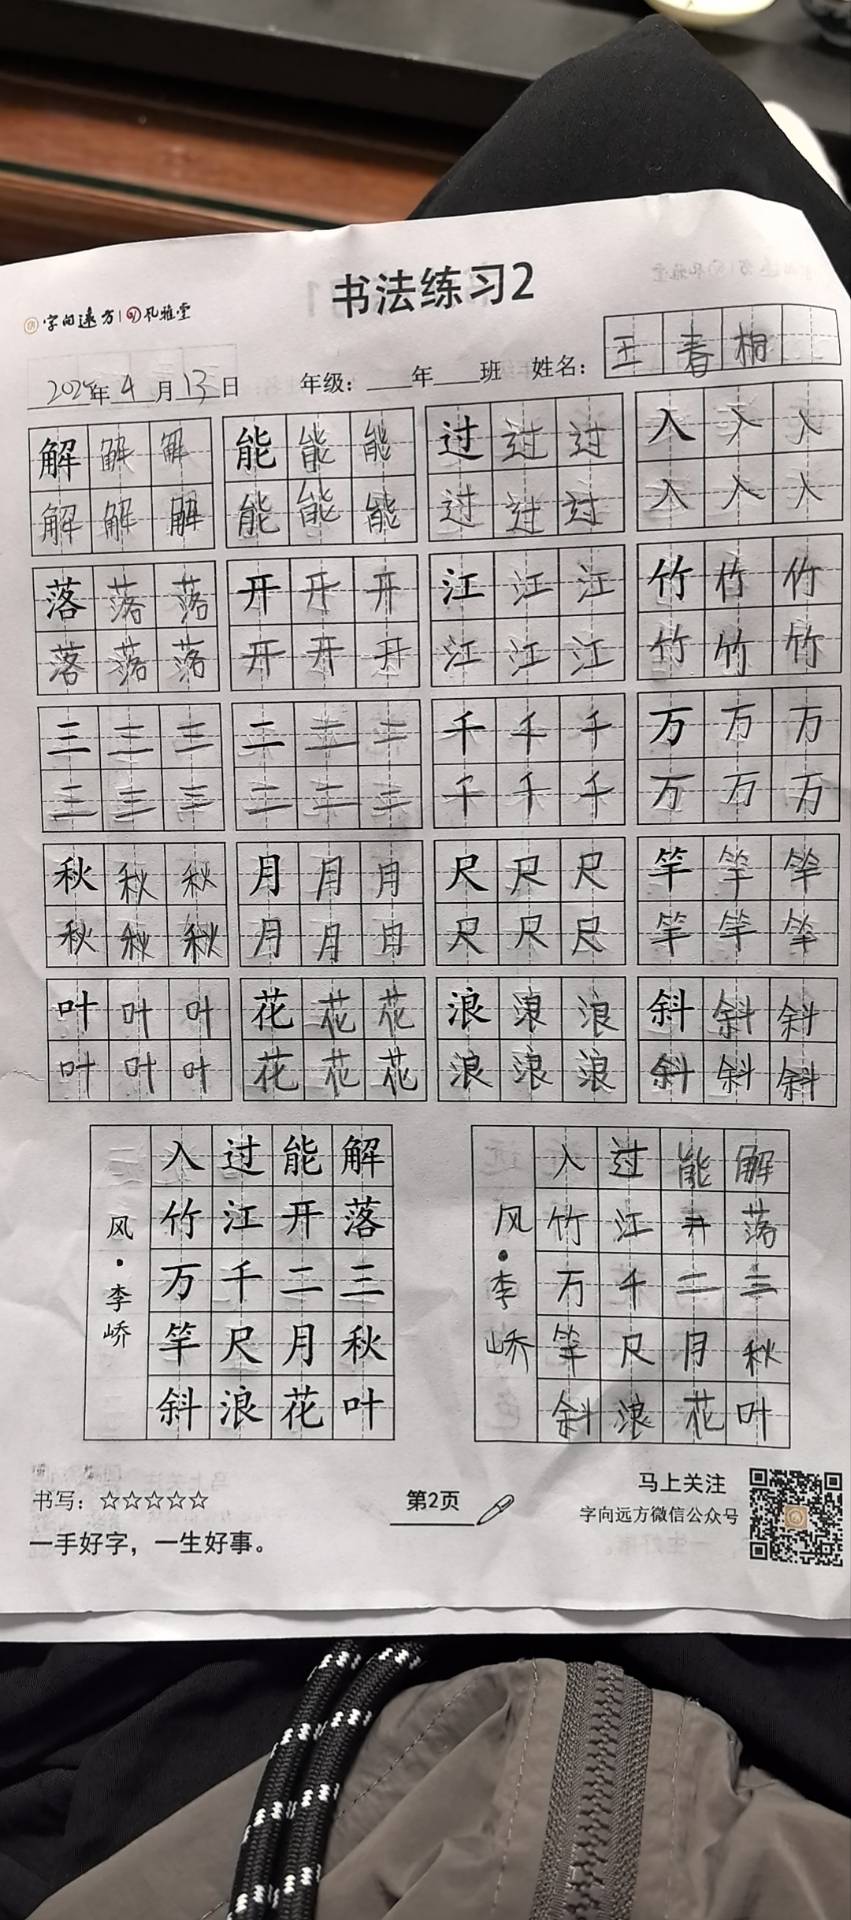 书法练习2
字向远方 风雅堂
2024年4月13日 年级：____年____班 姓名：王春桐
解解解 能能能 过过过 入入入
解解解 能能能 过过过 入入入
落落落 开开开 江江江 竹竹竹
落落落 开开开 江江江 竹竹竹
三三三 二二二 千千千 万万万
三三三 二二二 千千千 万万万
秋秋秋 月月月 尺尺尺 竿竿竿
秋秋秋 月月月 尺尺尺 竿竿竿
叶叶叶 花花花 浪浪浪 斜斜斜
叶叶叶 花花花 浪浪浪 斜斜斜
解落三秋叶
能开二月花
过江千尺浪
入竹万竿斜
风·李峤
解落三秋叶
能开二月花
过江千尺浪
入竹万竿斜
风·李峤
书写：☆☆☆☆☆
一手好字，一生好事。
第2页
马上关注
字向远方微信公众号